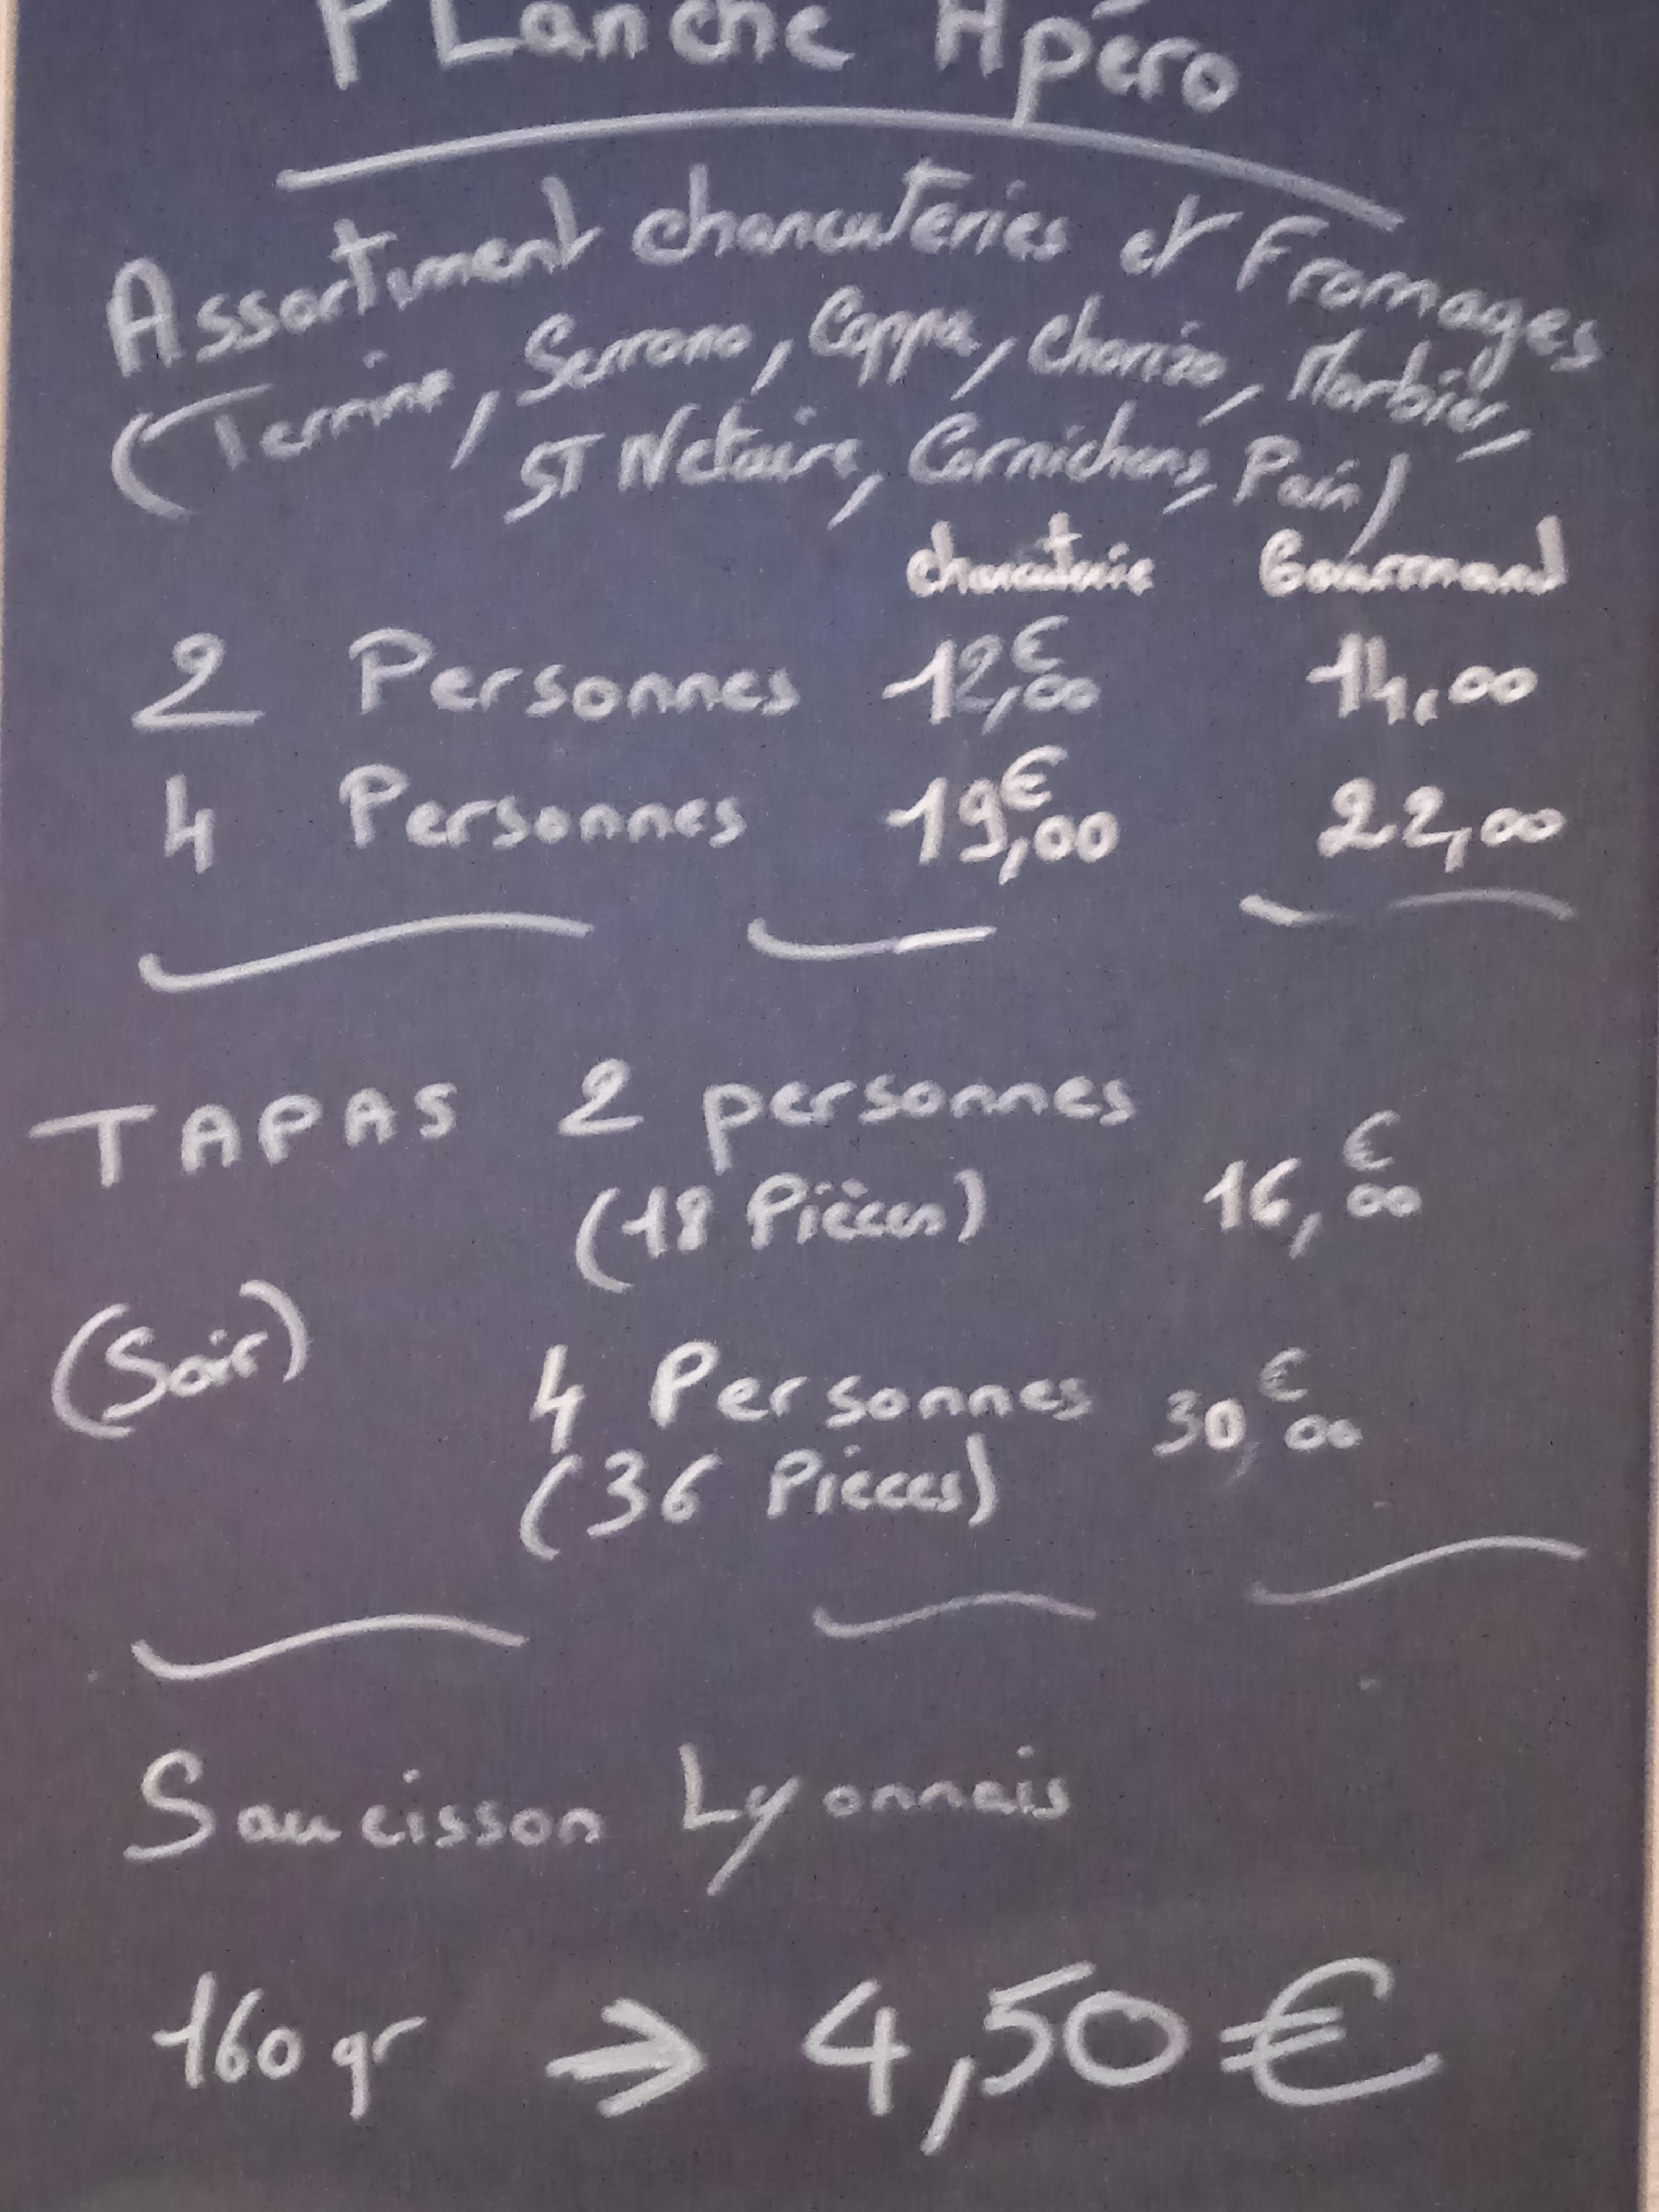 PLanche Apéro
Assortiment charcuteries et Fromages
(Terrine, Serrano, Coppa, Chorizo, Morbier,
ST Nectaire, Cornichons, Pain)
charcuterie Gourmand
2 Personnes 12,00€ 14,00
4 Personnes 19,00€ 22,00
TAPAS 2 personnes
(18 Pièces) 16,00€
(Soir)
4 Personnes 30,00€
(36 Pièces)
Saucisson Lyonnais
160 gr → 4,50€